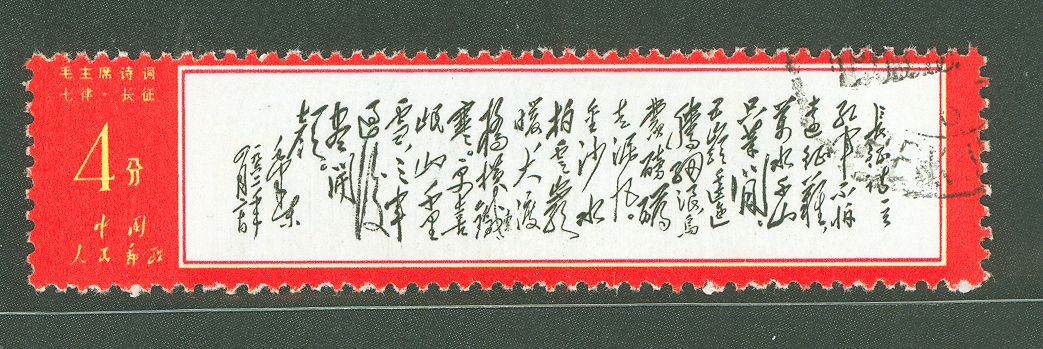 毛主席诗词
七律·长征
4分
中国
人民邮政
长征诗一首
红军不怕
远征难，
万水千山
只等闲。
五岭逶迤
腾细浪，乌
蒙磅礴
走泥丸。
金沙水
拍云崖
暖，大渡
桥横铁索
寒。更喜
岷山千里
雪，三军
过后
尽开
颜。
毛泽东
一九六二年
四月廿日